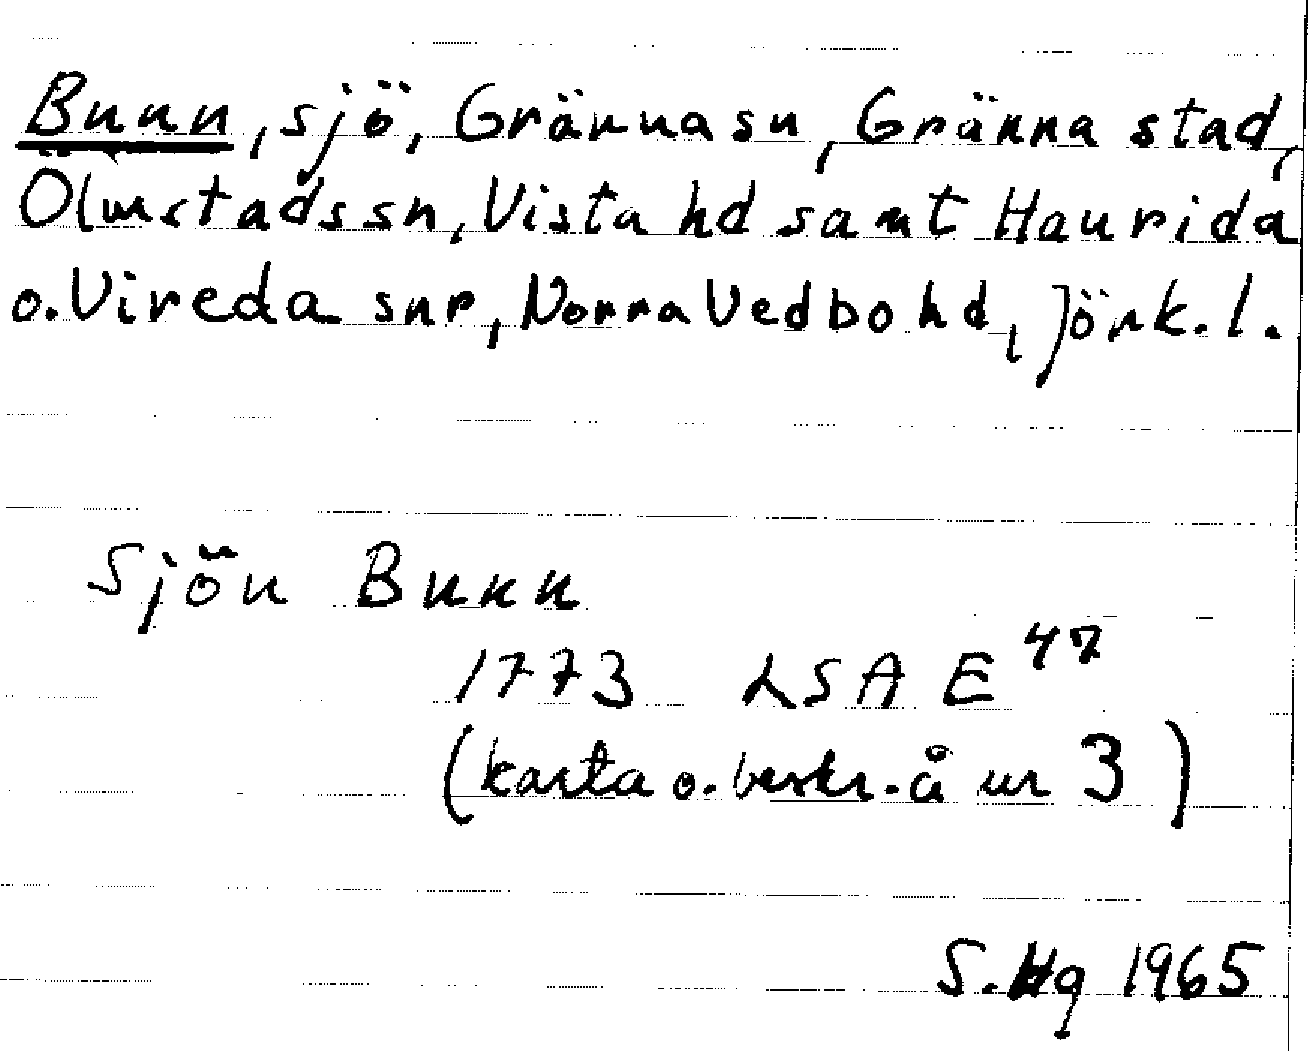 Bunn, sjö, Gränna sn, Gränna stad,
Ölmstads sn, Vista hd samt Haurida
o. Vireda snr, Norra Vedbo hd, Jönk. l.
Sjön Bunn
1773 LSA E 47
(karta o. beskr. å nr 3)
S. Hg 1965